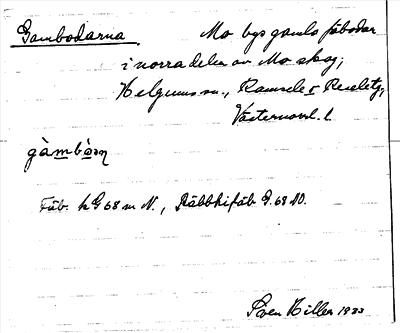 Gambodarna. Mo bys gamla fäbodar
i norra delen av Mo skog;
Helgums sn., Ramsele o Resele tg,
Västernorrl. l.
gàmbòɳ
Fäb. k G 68 m N., Räbbhifäb G. 68 NO.
Sven Hillen 1933